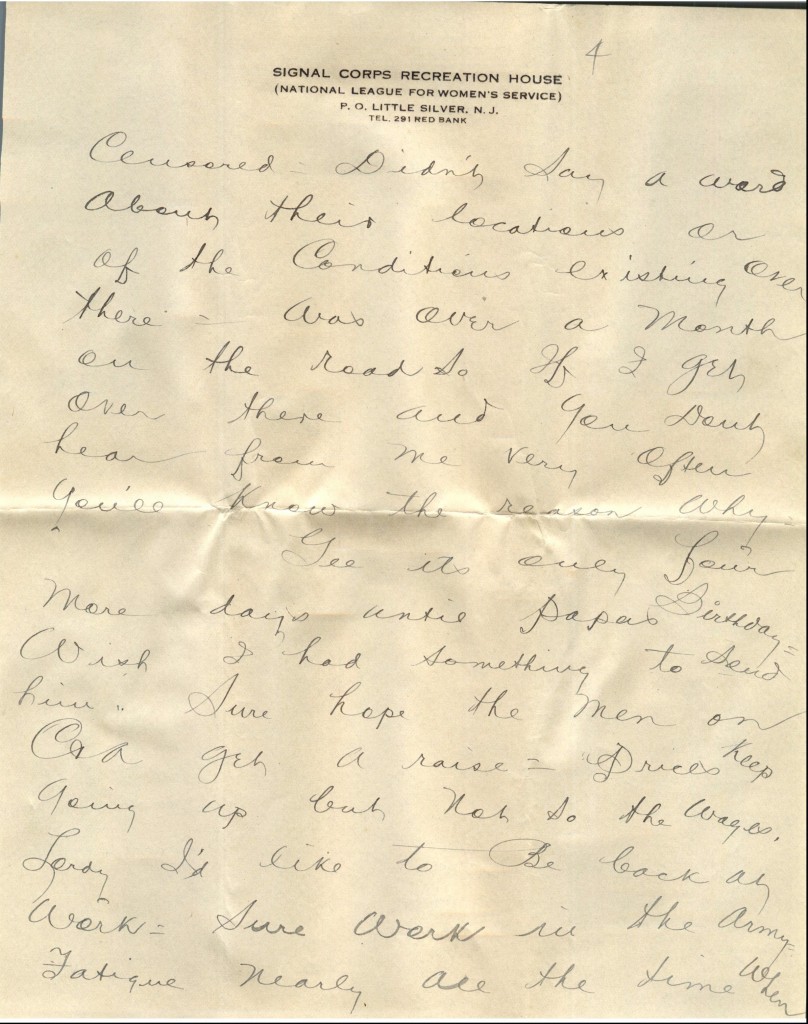 4
SIGNAL CORPS RECREATION HOUSE
(NATIONAL LEAGUE FOR WOMEN'S SERVICE)
P. O. LITTLE SILVER, N. J.
TEL. 291 RED BANK
Censored - Didn't Say a word
About their locations or
of the Conditions existing over
there - was over a Month
on the road so If I get
over there and you Dont
hear from me very often
You'll Know the reason why -
Gee its only four
More days until papas Birthday =
Wish I had something to send
him. Sure hope the men on
C&A get a raise = Prices Keep
going up but Not so the wages.
Lordy I'd like to Be back at
Work = Sure Work in the Army =
Fatigue nearly all the time when